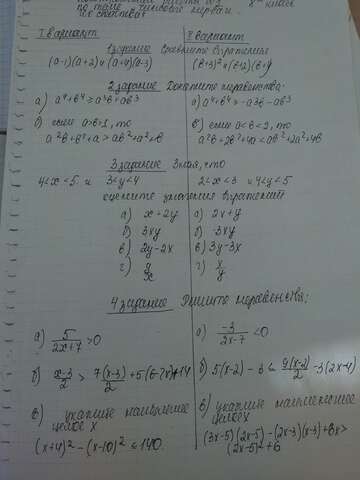 по теме числовые неравен.
и их свойства
I вариант II вариант
1 задание Сравните выражения
(a-1)(a+2) и (a+4)(a-3) (b+3)² и (b+2)(b+4)
2 задание Докажите неравенство:
а) a⁴+b⁴ ≥ a³b+ab³ а) a⁴+b⁴ ≥ -a³b-ab³
б) если a>b>1, то б) если a<b<2, то
a²b+b²+a > ab²+a²+b a²b+2b²+4a < ab²+2a²+4b
3 задание Зная, что
4<x<5 и 3<y<4 2<x<3 и 4<y<5
оцените значения выражений
а) x+2y а) 2x+y
б) 3xy б) 3xy
в) 2y-2x в) 3y-3x
г) y/x г) x/y
4 задание Решите неравенства:
а) 5/(2x+7) >0 а) -3/(2x-7) <0
б) (x-3)/2 > 7(x-3)/2 +5(6-7x)+14 б) 5(x-2) - 3 ≤ 9(x-2)/2 -3(2x-4)
в) укажите наибольшее в) укажите наименьшее
целое x целое x
(x+4)² - (x-10)² ≤ 140. (3x-5)(2x-5) - (2x-3)(x-3)+8x>
(2x-5)²+6